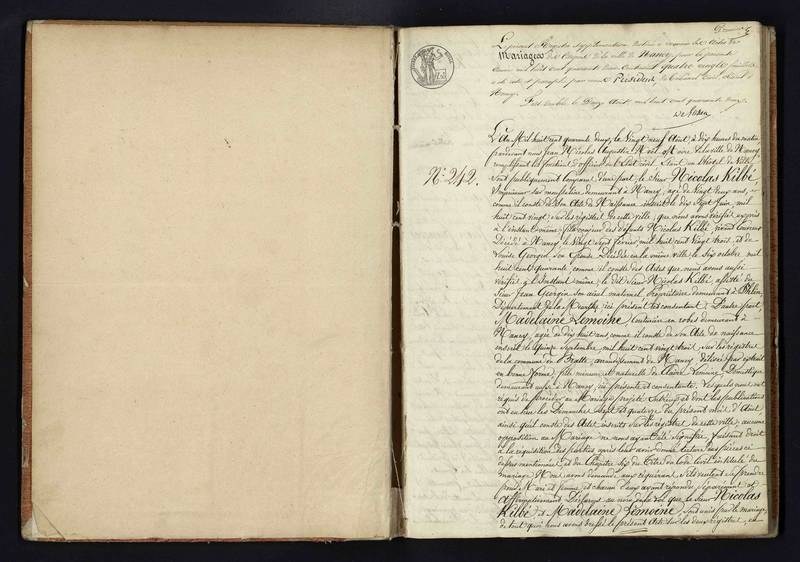 Le présent Registre supplémentaire destiné à recevoir les Actes de
Mariages des Citoyens de la ville de Nancy pour la présente
année mil huit cent quarante deux, contenant quatre vingts feuillets
a été coté et paraphé par nous Président du tribunal Civil séant à
Nancy.
Fait double le Douze Août mil huit cent quarante deux.
N.° 242.
L'An Mil huit cent quarante deux, le Vingt neuf Août, à dix heures du matin
pardevant nous Jean Nicolas Augustin Noël, Maire de la ville de Nancy
remplissant les fonctions d'officier de l'Etat civil. Sont en l'hôtel de Ville
sont publiquement comparus d'une part, le Sieur Nicolas Kilbé,
Imprimeur sur mousseline demeurant à Nancy, agé de vingt deux ans,
comme il conste de son Acte de Naissance inscrit le dix Sept Juin, mil
huit cent vingt, sur les registres de cette ville, que nous avons vérifié exprès
à l'instant même; fils majeur des défunts Nicolas Kilbé, vivant
Décédé à Nancy le vingt Sept Février mil huit cent vingt trois, et de
Louise Georgin, son Epouse Décédée en la même ville, le Six octobre mil
huit cent quarante, comme il conste des Actes que nous avons aussi
vérifié à l'Instant même; le dit Sieur Nicolas Kilbé, assisté du
Sieur Jean Georgin son aïeul maternel, Propriétaire demeurant à
département de la Meurthe, ici présent et consentant; D'autre part,
Madelaine Lemoine, Couturière en robes demeurant à
Nancy, agée de dix huit ans, comme il conste de son Acte de naissance
inscrit le quinze Septembre, mil huit cent vingt trois, sur les registres
de la commune de Bratte, arrondissement de Nancy délivré par extrait
en bonne forme; fille mineure et naturelle de Claire Lemoine, Domestique
demeurant aussi à Nancy, ici présente et consentante. Lesquels nous ont
requis de procéder au Mariage projeté entre eux et dont les publications
ont eu lieu les Dimanches Sept et quatorze du présent mois d'Août
ainsi qu'il conste des Actes inscrits sur les registres de cette ville; aucune
opposition au Mariage ne nous ayant été signifiée, faisant droit
à la réquisition des parties après leur avoir donné lecture des pièces ci
dessus mentionnées et du Chapitre Six du Titre du Code Civil intitulé du
mariage Nous avons demandé aux requérans, s'ils veulent se prendre
pour Mari et femme et chacun d'eux ayant répondu séparément et
affirmativement Déclarons au nom de la loi que le Sieur Nicolas
Kilbé et Madelaine Lemoine, sont unis par le mariage,
de tout quoi nous avons dressé le présent Acte sur les deux registres, en